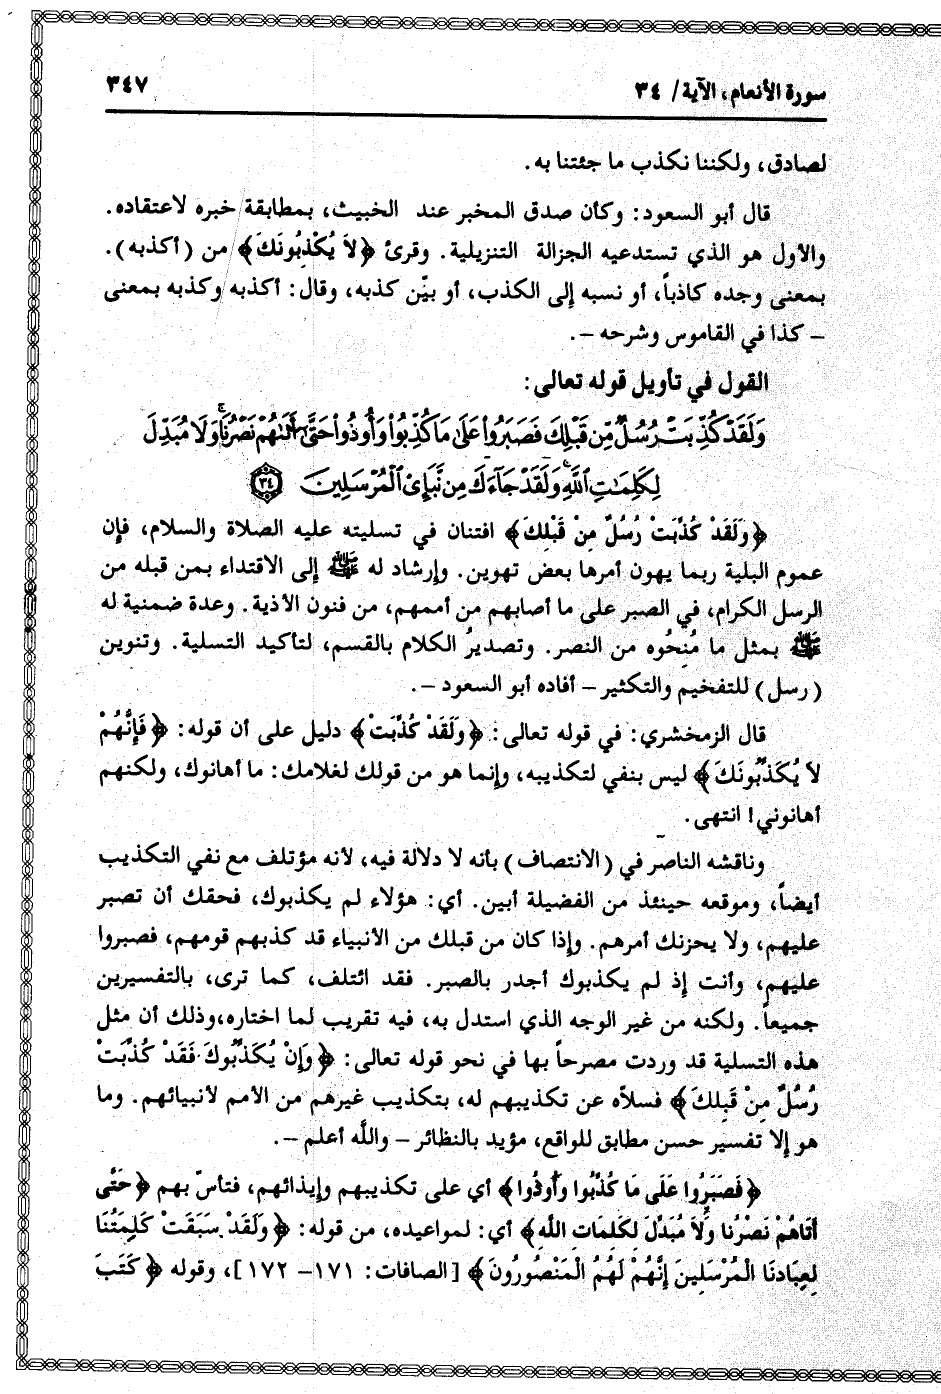 سورة الأنعام، الآية/ ٣٤
٣٤٧
لصادق، ولكننا نكذب ما جئتنا به.
قال أبو السعود: وكأن صدق المخبر عند الخبيث، بمطابقة خبره لاعتقاده.
والأول هو الذي تستدعيه الجزالة التنزيلية. وقرئ ﴿لاَ يُكْذِبُونَكَ﴾ من (أكذبه).
بمعنى وجده كاذباً، أو نسبه إلى الكذب، أو بيّن كذبه، وقال: أكذبه وكذبه بمعنى
– كذا في القاموس وشرحه –.
القول في تأويل قوله تعالى:
وَلَقَدْ كُذِّبَتْ رُسُلٌ مِّن قَبْلِكَ فَصَبَرُواْ عَلَىٰ مَا كُذِّبُواْ وَأُوذُواْ حَتَّىٰ أَتَىٰهُمْ نَصْرُنَا ۚ وَلَا مُبَدِّلَ
لِكَلِمَٰتِ ٱللَّهِ ۚ وَلَقَدْ جَآءَكَ مِن نَّبَإِىْ ٱلْمُرْسَلِينَ ٣٤
﴿وَلَقَدْ كُذِّبَتْ رُسُلٌ مِنْ قَبْلِكَ﴾ افتنان في تسليته عليه الصلاة والسلام، فإن
عموم البلية ربما يهون أمرها بعض تهوين. وإرشاد له ﷺ إلى الاقتداء بمن قبله من
الرسل الكرام، في الصبر على ما أصابهم من أممهم، من فنون الأذية. وعدة ضمنية له
ﷺ بمثل ما مُنِحُوه من النصر. وتصديرُ الكلام بالقسم، لتأكيد التسلية. وتنوين
(رسل) للتفخيم والتكثير – أفاده أبو السعود –.
قال الزمخشري: في قوله تعالى: ﴿وَلَقَدْ كُذِّبَتْ﴾ دليل على أن قوله: ﴿فَإِنَّهُمْ
لاَ يُكَذِّبُونَكَ﴾ ليس بنفي لتكذيبه، وإنما هو من قولك لغلامك: ما أهانوك، ولكنهم
أهانوني! انتهى.
وناقشه الناصر في (الانتصاف) بأنه لا دلالة فيه، لأنه مؤتلف مع نفي التكذيب
أيضاً، وموقعه حينئذ من الفضيلة أبين. أي: هؤلاء لم يكذبوك، فحقك أن تصبر
عليهم، ولا يحزنك أمرهم. وإذا كان من قبلك من الأنبياء قد كذبهم قومهم، فصبروا
عليهم، وأنت إذ لم يكذبوك أجدر بالصبر. فقد ائتلف، كما ترى، بالتفسيرين
جميعاً. ولكنه من غير الوجه الذي استدل به، فيه تقريب لما اختاره،وذلك أن مثل
هذه التسلية قد وردت مصرحاً بها في نحو قوله تعالى: ﴿وَإِنْ يُكَذِّبُوكَ فَقَدْ كُذِّبَتْ
رُسُلٌ مِنْ قَبْلِكَ﴾ فسلاّه عن تكذيبهم له، بتكذيب غيرهم من الأمم لأنبيائهم. وما
هو إلا تفسير حسن مطابق للواقع، مؤيد بالنظائر – والله أعلم –.
﴿فَصَبَرُوا عَلَى مَا كُذِّبُوا وَأُوذُوا﴾ أي على تكذيبهم وإيذائهم، فتأسّ بهم ﴿حَتَّى
أَتَاهُمْ نَصْرُنَا وَلاَ مُبَدِّلَ لِكَلِمَاتِ اللَّهِ﴾ أي: لمواعيده، من قوله: ﴿وَلَقَدْ سَبَقَتْ كَلِمَتُنَا
لِعِبَادِنَا الْمُرْسَلِينَ إِنَّهُمْ لَهُمُ الْمَنْصُورُونَ﴾ [الصافات: ١٧١– ١٧٢]، وقوله ﴿كَتَبَ